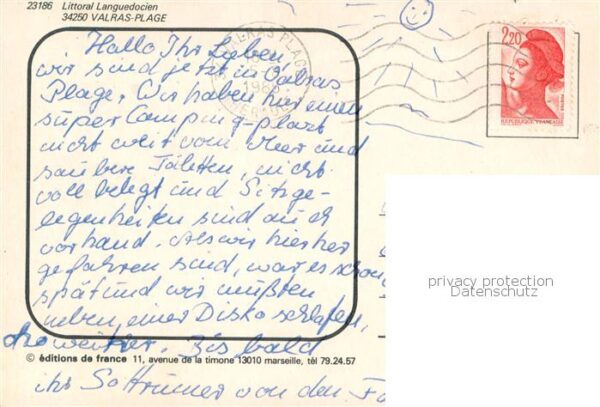 23186 Littoral Languedocien
34250 VALRAS-PLAGE
VALRAS PLAGE
2,20
REPUBLIQUE FRANÇAISE
Hallo Ihr Lieben,
wir sind jetzt in Valras
Plage. Wir haben hier einen
super Camping-platz
nicht weit vom Meer und
saubere Toiletten, nicht
voll belegt und Sitzge-
legenheiten sind auch
vorhand. Als wir hierher
gefahren sind, war es schon
spät und wir mußten
neben einer Disko schlafen,
Bis bald
von den
privacy protection
Datenschutz
© éditions de france 11, avenue de la timone 13010 marseille, tél 79.24.57